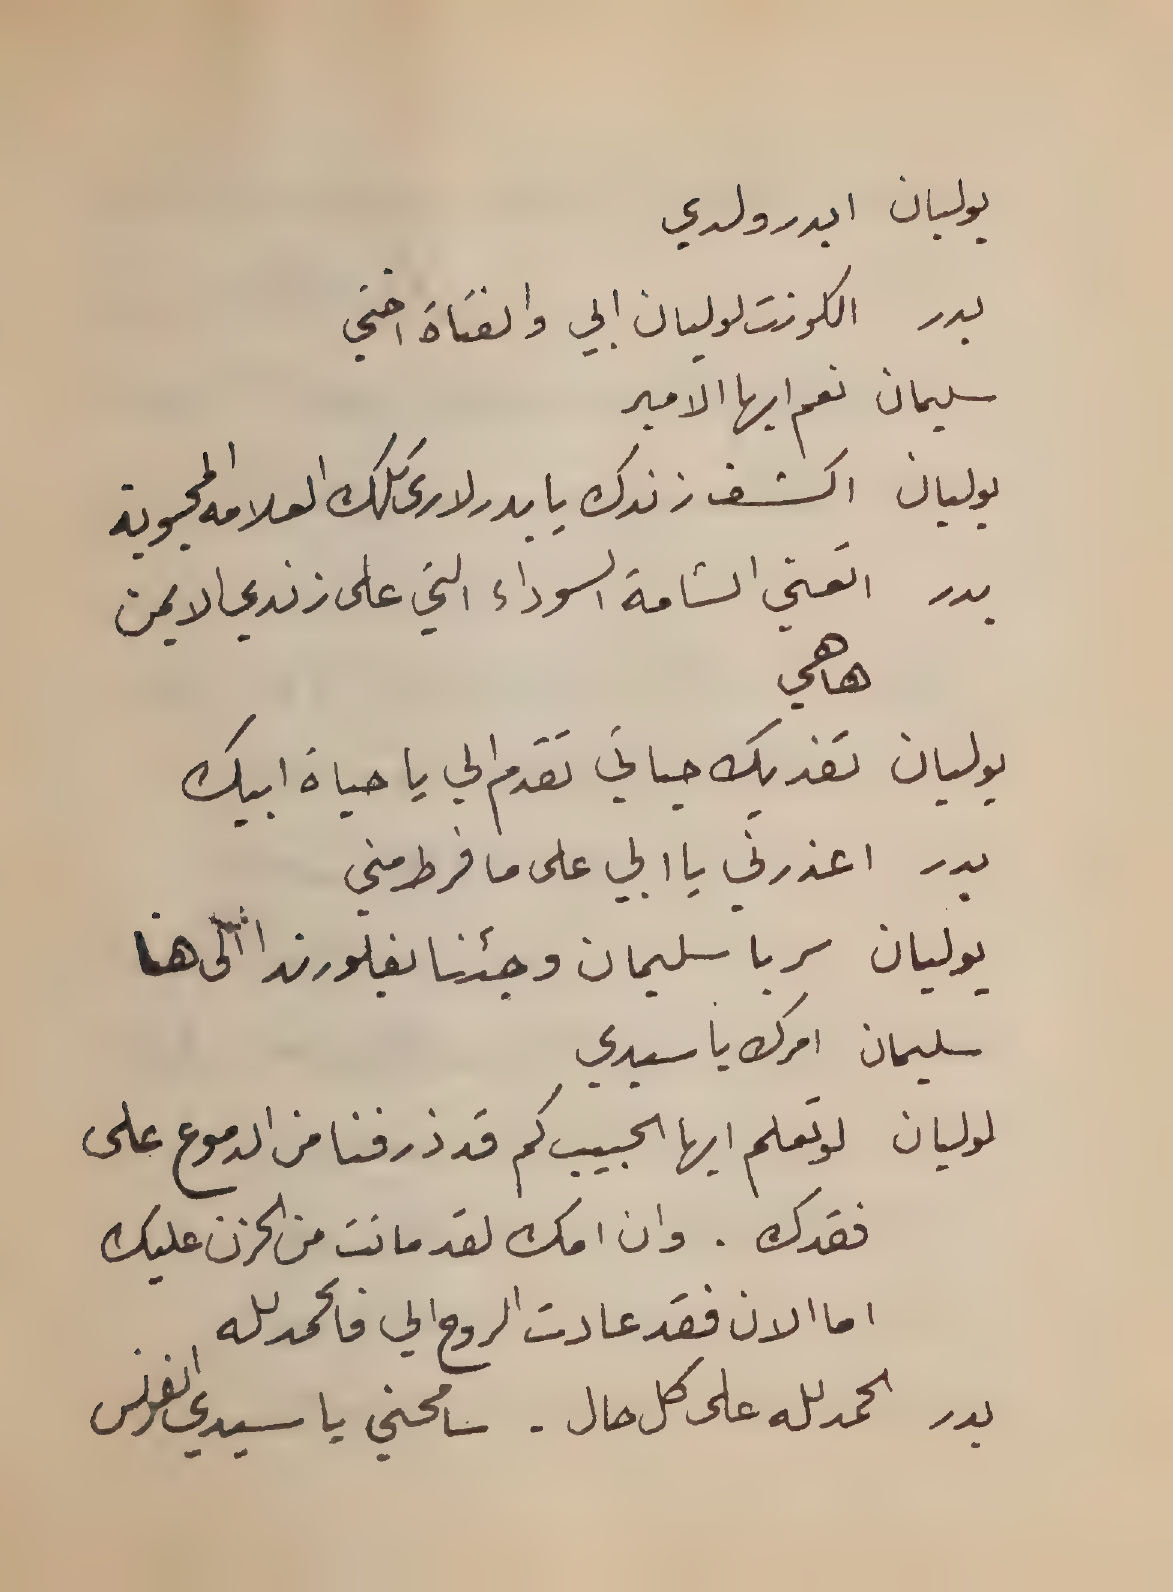 يوليان ابدر ولدي
بدر الكونت لوليان ابي والفتاة اختي
سليمان نعم ايها الامير
يوليان اكشف زندك يا بدر لارى تلك العلامه المحبوبة
بدر اتعني الشامة السوداء التي على زندي الايمن
هاهي
يوليان تفديك حياتي تقدم الي يا حياة ابيك
بدر اعذرني يا ابي على ما فرط مني
يوليان سر يا سليمان وجئنا بفلورندا الى هنا
سليمان امرك يا سيدي
لوليان لو تعلم ايها الحبيب كم قد ذرفنا من الدموع على
فقدك . وان امك لقد ماتت من الحزن عليك
اما الان فقد عادت الروح الي فالحمد لله
بدر الحمد لله على كل حال . سامحني يا سيدي الفونس